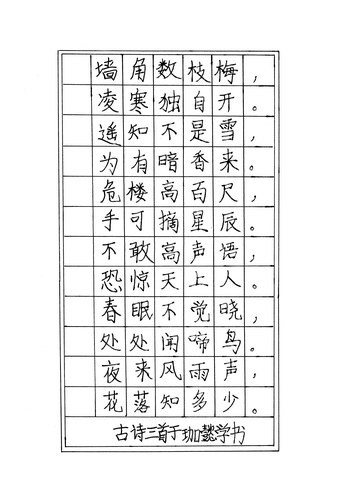 墙角数枝梅，
凌寒独自开。
遥知不是雪，
为有暗香来。
危楼高百尺，
手可摘星辰。
不敢高声语，
恐惊天上人。
春眠不觉晓，
处处闻啼鸟。
夜来风雨声，
花落知多少。
古诗三首于珈懿学书